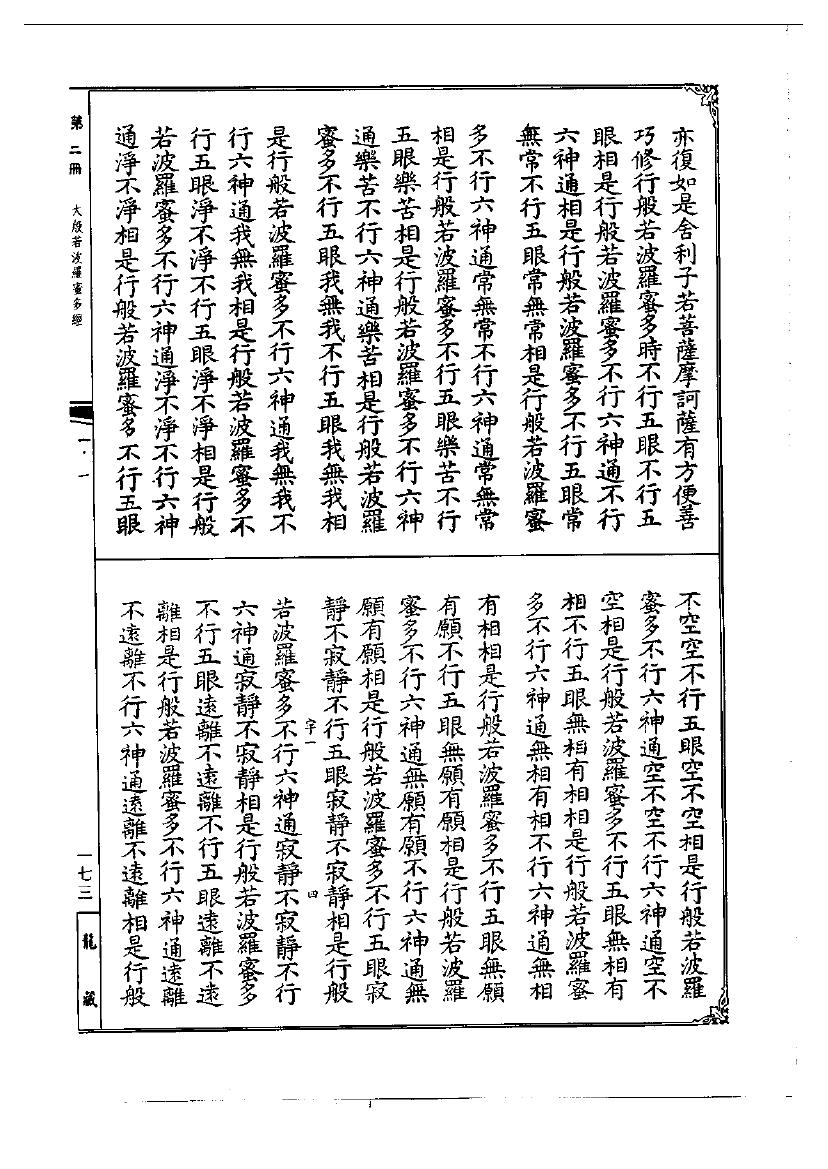 亦復如是舍利子若菩薩摩訶薩有方便善
巧修行般若波羅蜜多時不行五眼不行五
眼相是行般若波羅蜜多不行六神通不行
六神通相是行般若波羅蜜多不行五眼常
無常不行五眼常無常相是行般若波羅蜜
多不行六神通常無常不行六神通常無常
相是行般若波羅蜜多不行五眼樂苦不行
五眼樂苦相是行般若波羅蜜多不行六神
通樂苦不行六神通樂苦相是行般若波羅
蜜多不行五眼我無我不行五眼我無我相
是行般若波羅蜜多不行六神通我無我不
行六神通我無我相是行般若波羅蜜多不
行五眼淨不淨不行五眼淨不淨相是行般
若波羅蜜多不行六神通淨不淨不行六神
通淨不淨相是行般若波羅蜜多不行五眼
不空空不行五眼空不空相是行般若波羅
蜜多不行六神通空不空不行六神通空不
空相是行般若波羅蜜多不行五眼無相有
相不行五眼無相有相相是行般若波羅蜜
多不行六神通無相有相不行六神通無相
有相相是行般若波羅蜜多不行五眼無願
有願不行五眼無願有願相是行般若波羅
蜜多不行六神通無願有願不行六神通無
願有願相是行般若波羅蜜多不行五眼寂
靜不寂靜不行五眼寂靜不寂靜相是行般
字一 四
若波羅蜜多不行六神通寂靜不寂靜不行
六神通寂靜不寂靜相是行般若波羅蜜多
不行五眼遠離不遠離不行五眼遠離不遠
離相是行般若波羅蜜多不行六神通遠離
不遠離不行六神通遠離不遠離相是行般
第二冊 大般若波羅蜜多經
一・一
一七三
龍藏